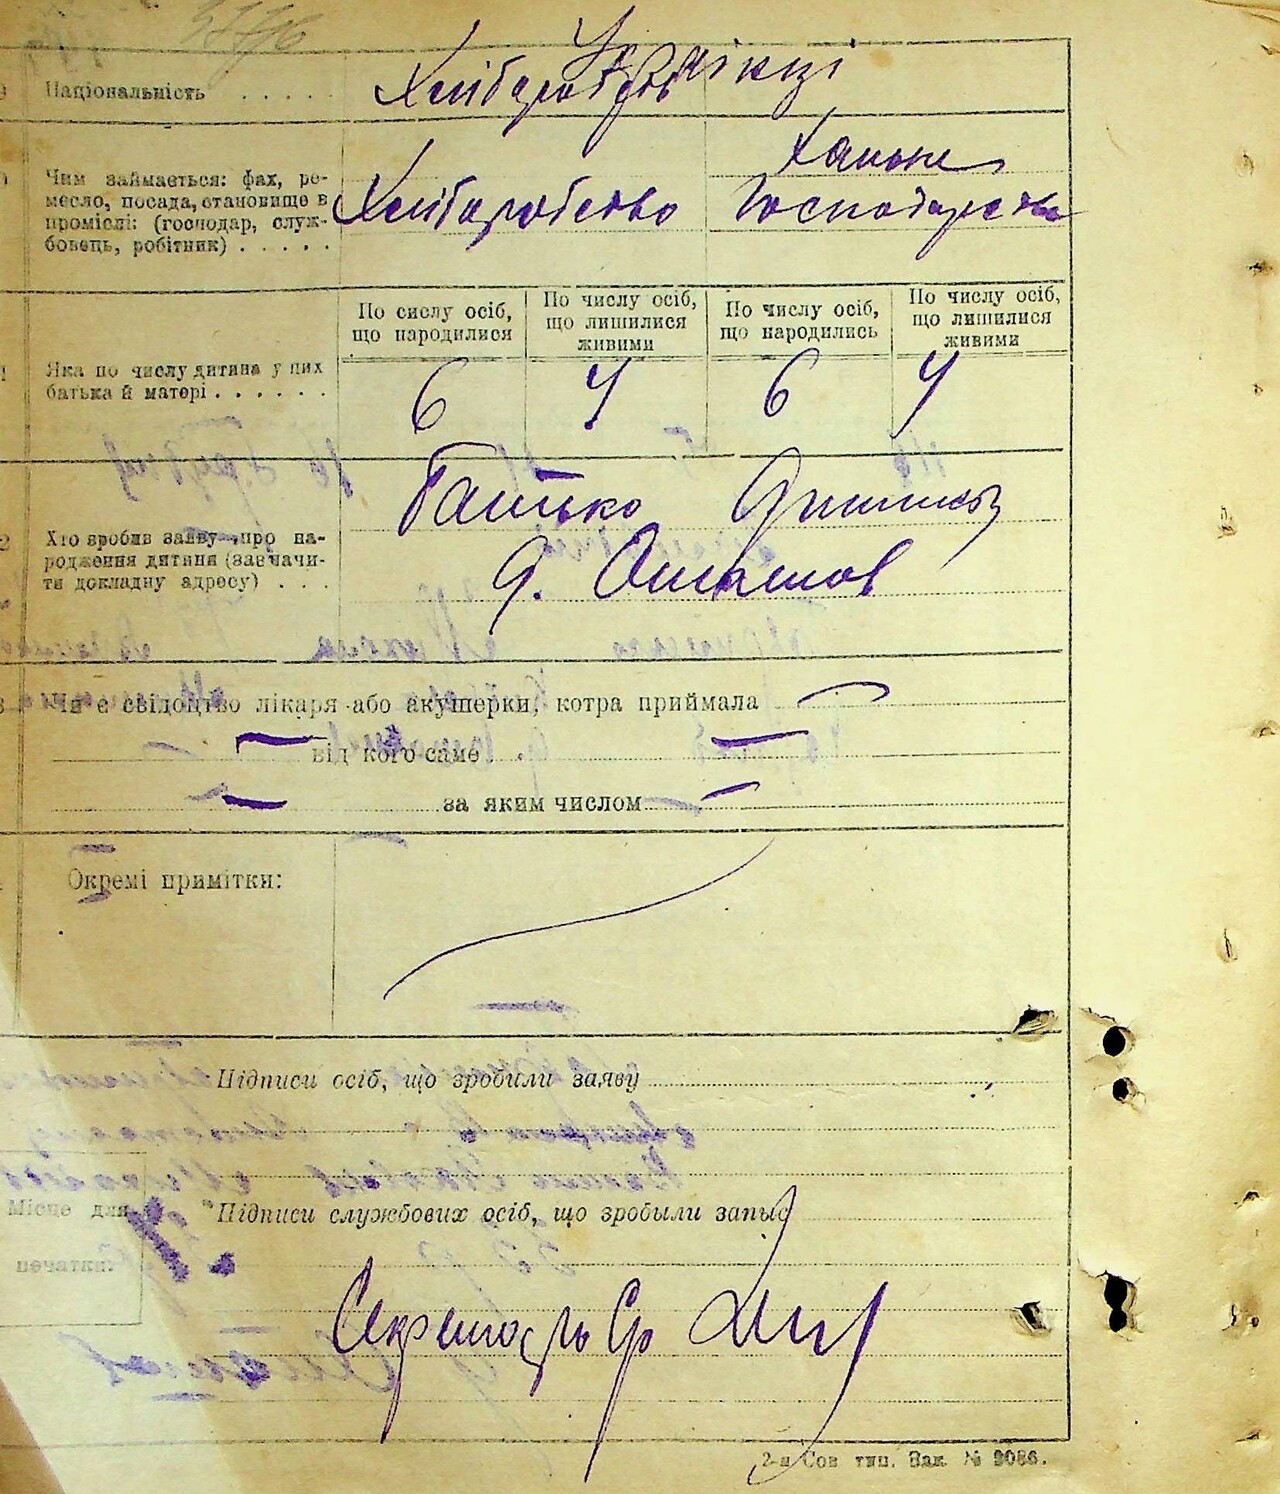 Українці
Національність . . . . . Хліборобство
Хатьне
Чим займається: фах, ре-
месло, посада, становище в
промислі: (господар, служ-
бовець, робітник) . . . . .
Хліборобство Господарство
По сислу осіб, що народилися
По числу осіб, що лишилися живими
По числу осіб, що народились
По числу осіб, що лишилися живими
Яка по числу дитина у них
батька й матері . . . . . .
6 4 6 4
Батько
Хто зробив заяву про на-
родження дитини (зазначи-
ти докладну адресу) . . .
Чи є свідоцтво лікаря або акушерки, котра приймала
від кого саме
за яким числом
Окремі примітки:
Підписи осіб, що зробили заяву
Місце для
печатки:
Підписи службових осіб, що зробыли запыс
Секретарь Ср
2-я Сов тип. Зак. № 9086.